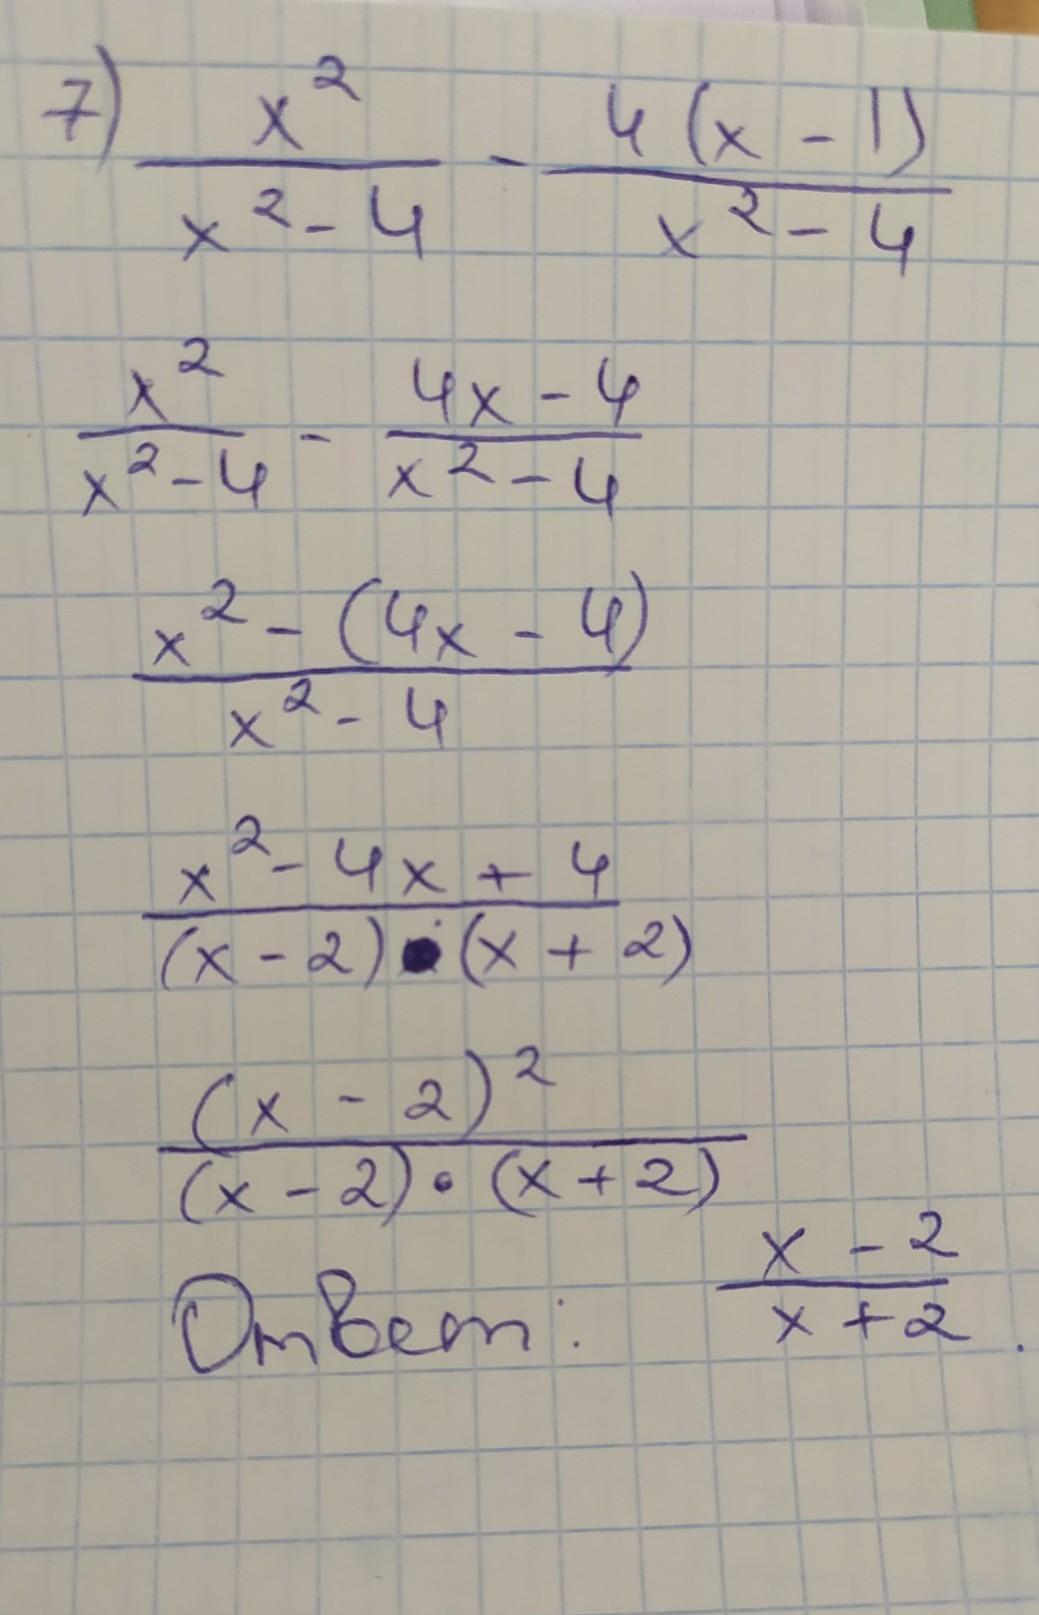 7) x² / (x² - 4) - 4(x - 1) / (x² - 4)
x² / (x² - 4) - (4x - 4) / (x² - 4)
(x² - (4x - 4)) / (x² - 4)
(x² - 4x + 4) / ((x - 2) • (x + 2))
(x - 2)² / ((x - 2) • (x + 2))
Ответ: (x - 2) / (x + 2).